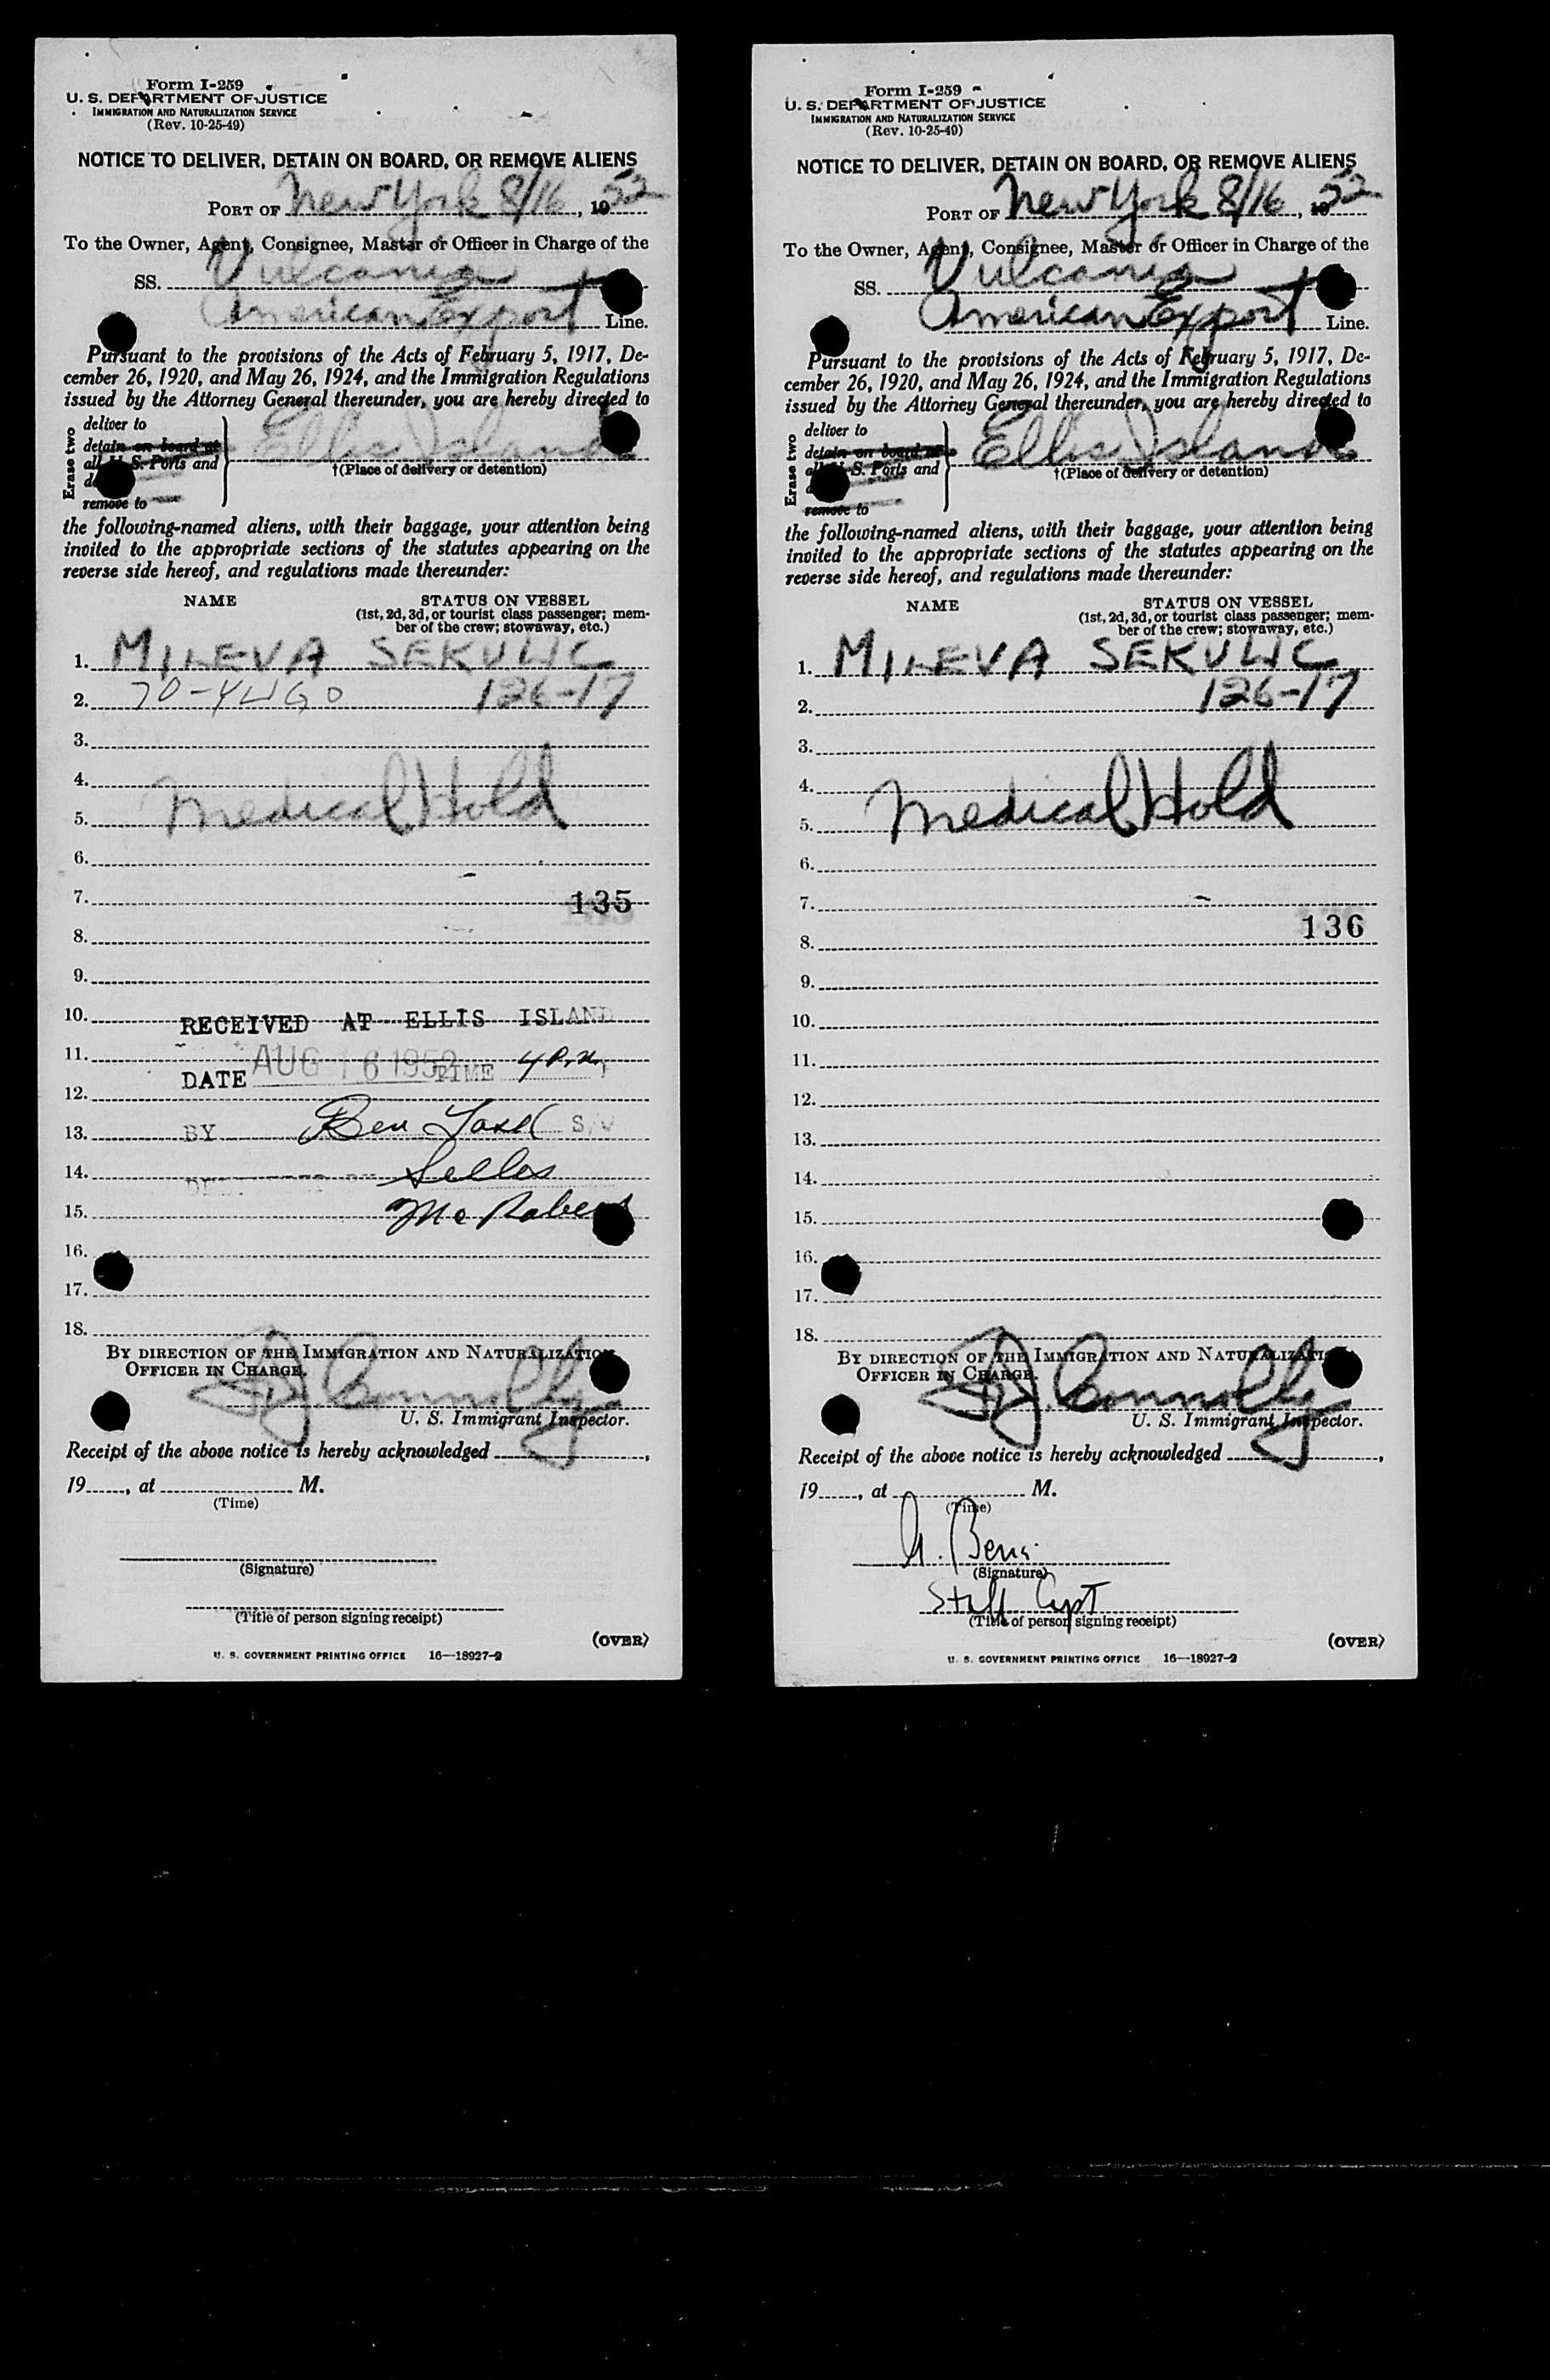 Form I-259
U. S. DEPARTMENT OF JUSTICE
IMMIGRATION AND NATURALIZATION SERVICE
(Rev. 10-25-49)
NOTICE TO DELIVER, DETAIN ON BOARD, OR REMOVE ALIENS
PORT OF New York 8/16, 1952
To the Owner, Agent, Consignee, Master or Officer in Charge of the
SS. Vulcania
American Export Line.
Pursuant to the provisions of the Acts of February 5, 1917, De-
cember 26, 1920, and May 26, 1924, and the Immigration Regulations
issued by the Attorney General thereunder, you are hereby directed to
Erase two
deliver to
detain on board at
all U. S. Ports and
remove to
Ellis Island
†(Place of delivery or detention)
the following-named aliens, with their baggage, your attention being
invited to the appropriate sections of the statutes appearing on the
reverse side hereof, and regulations made thereunder:
NAME STATUS ON VESSEL
(1st, 2d, 3d, or tourist class passenger; mem-
ber of the crew; stowaway, etc.)
1. MILEVA SEKULIC
2. 70-YUGO 126-17
3.
4.
5. Medical Hold
6.
7. 135
8.
9.
10. RECEIVED AT ELLIS ISLAND
11. DATE AUG 16 1952 TIME 4 P.M.
12.
13. BY Ben
14.
15.
16.
17.
18.
BY DIRECTION OF THE IMMIGRATION AND NATURALIZATION
OFFICER IN CHARGE.
Connolly
U. S. Immigrant Inspector.
Receipt of the above notice is hereby acknowledged ,
19 , at M.
(Time)
(Signature)
(Title of person signing receipt)
(OVER)
U. S. GOVERNMENT PRINTING OFFICE 16—18927-2
Form I-259
U. S. DEPARTMENT OF JUSTICE
IMMIGRATION AND NATURALIZATION SERVICE
(Rev. 10-25-49)
NOTICE TO DELIVER, DETAIN ON BOARD, OR REMOVE ALIENS
PORT OF New York 8/16, 1952
To the Owner, Agent, Consignee, Master or Officer in Charge of the
SS. Vulcania
American Export Line.
Pursuant to the provisions of the Acts of February 5, 1917, De-
cember 26, 1920, and May 26, 1924, and the Immigration Regulations
issued by the Attorney General thereunder, you are hereby directed to
Erase two
deliver to
detain on board at
all U. S. Ports and
remove to
Ellis Island
†(Place of delivery or detention)
the following-named aliens, with their baggage, your attention being
invited to the appropriate sections of the statutes appearing on the
reverse side hereof, and regulations made thereunder:
NAME STATUS ON VESSEL
(1st, 2d, 3d, or tourist class passenger; mem-
ber of the crew; stowaway, etc.)
1. MILEVA SEKULIC
2. 126-17
3.
4.
5. Medical Hold
6.
7.
8. 136
9.
10.
11.
12.
13.
14.
15.
16.
17.
18.
BY DIRECTION OF THE IMMIGRATION AND NATURALIZATION
OFFICER IN CHARGE.
Connolly
U. S. Immigrant Inspector.
Receipt of the above notice is hereby acknowledged ,
19 , at M.
(Time)
(Signature)
Staff Capt
(Title of person signing receipt)
(OVER)
U. S. GOVERNMENT PRINTING OFFICE 16—18927-2